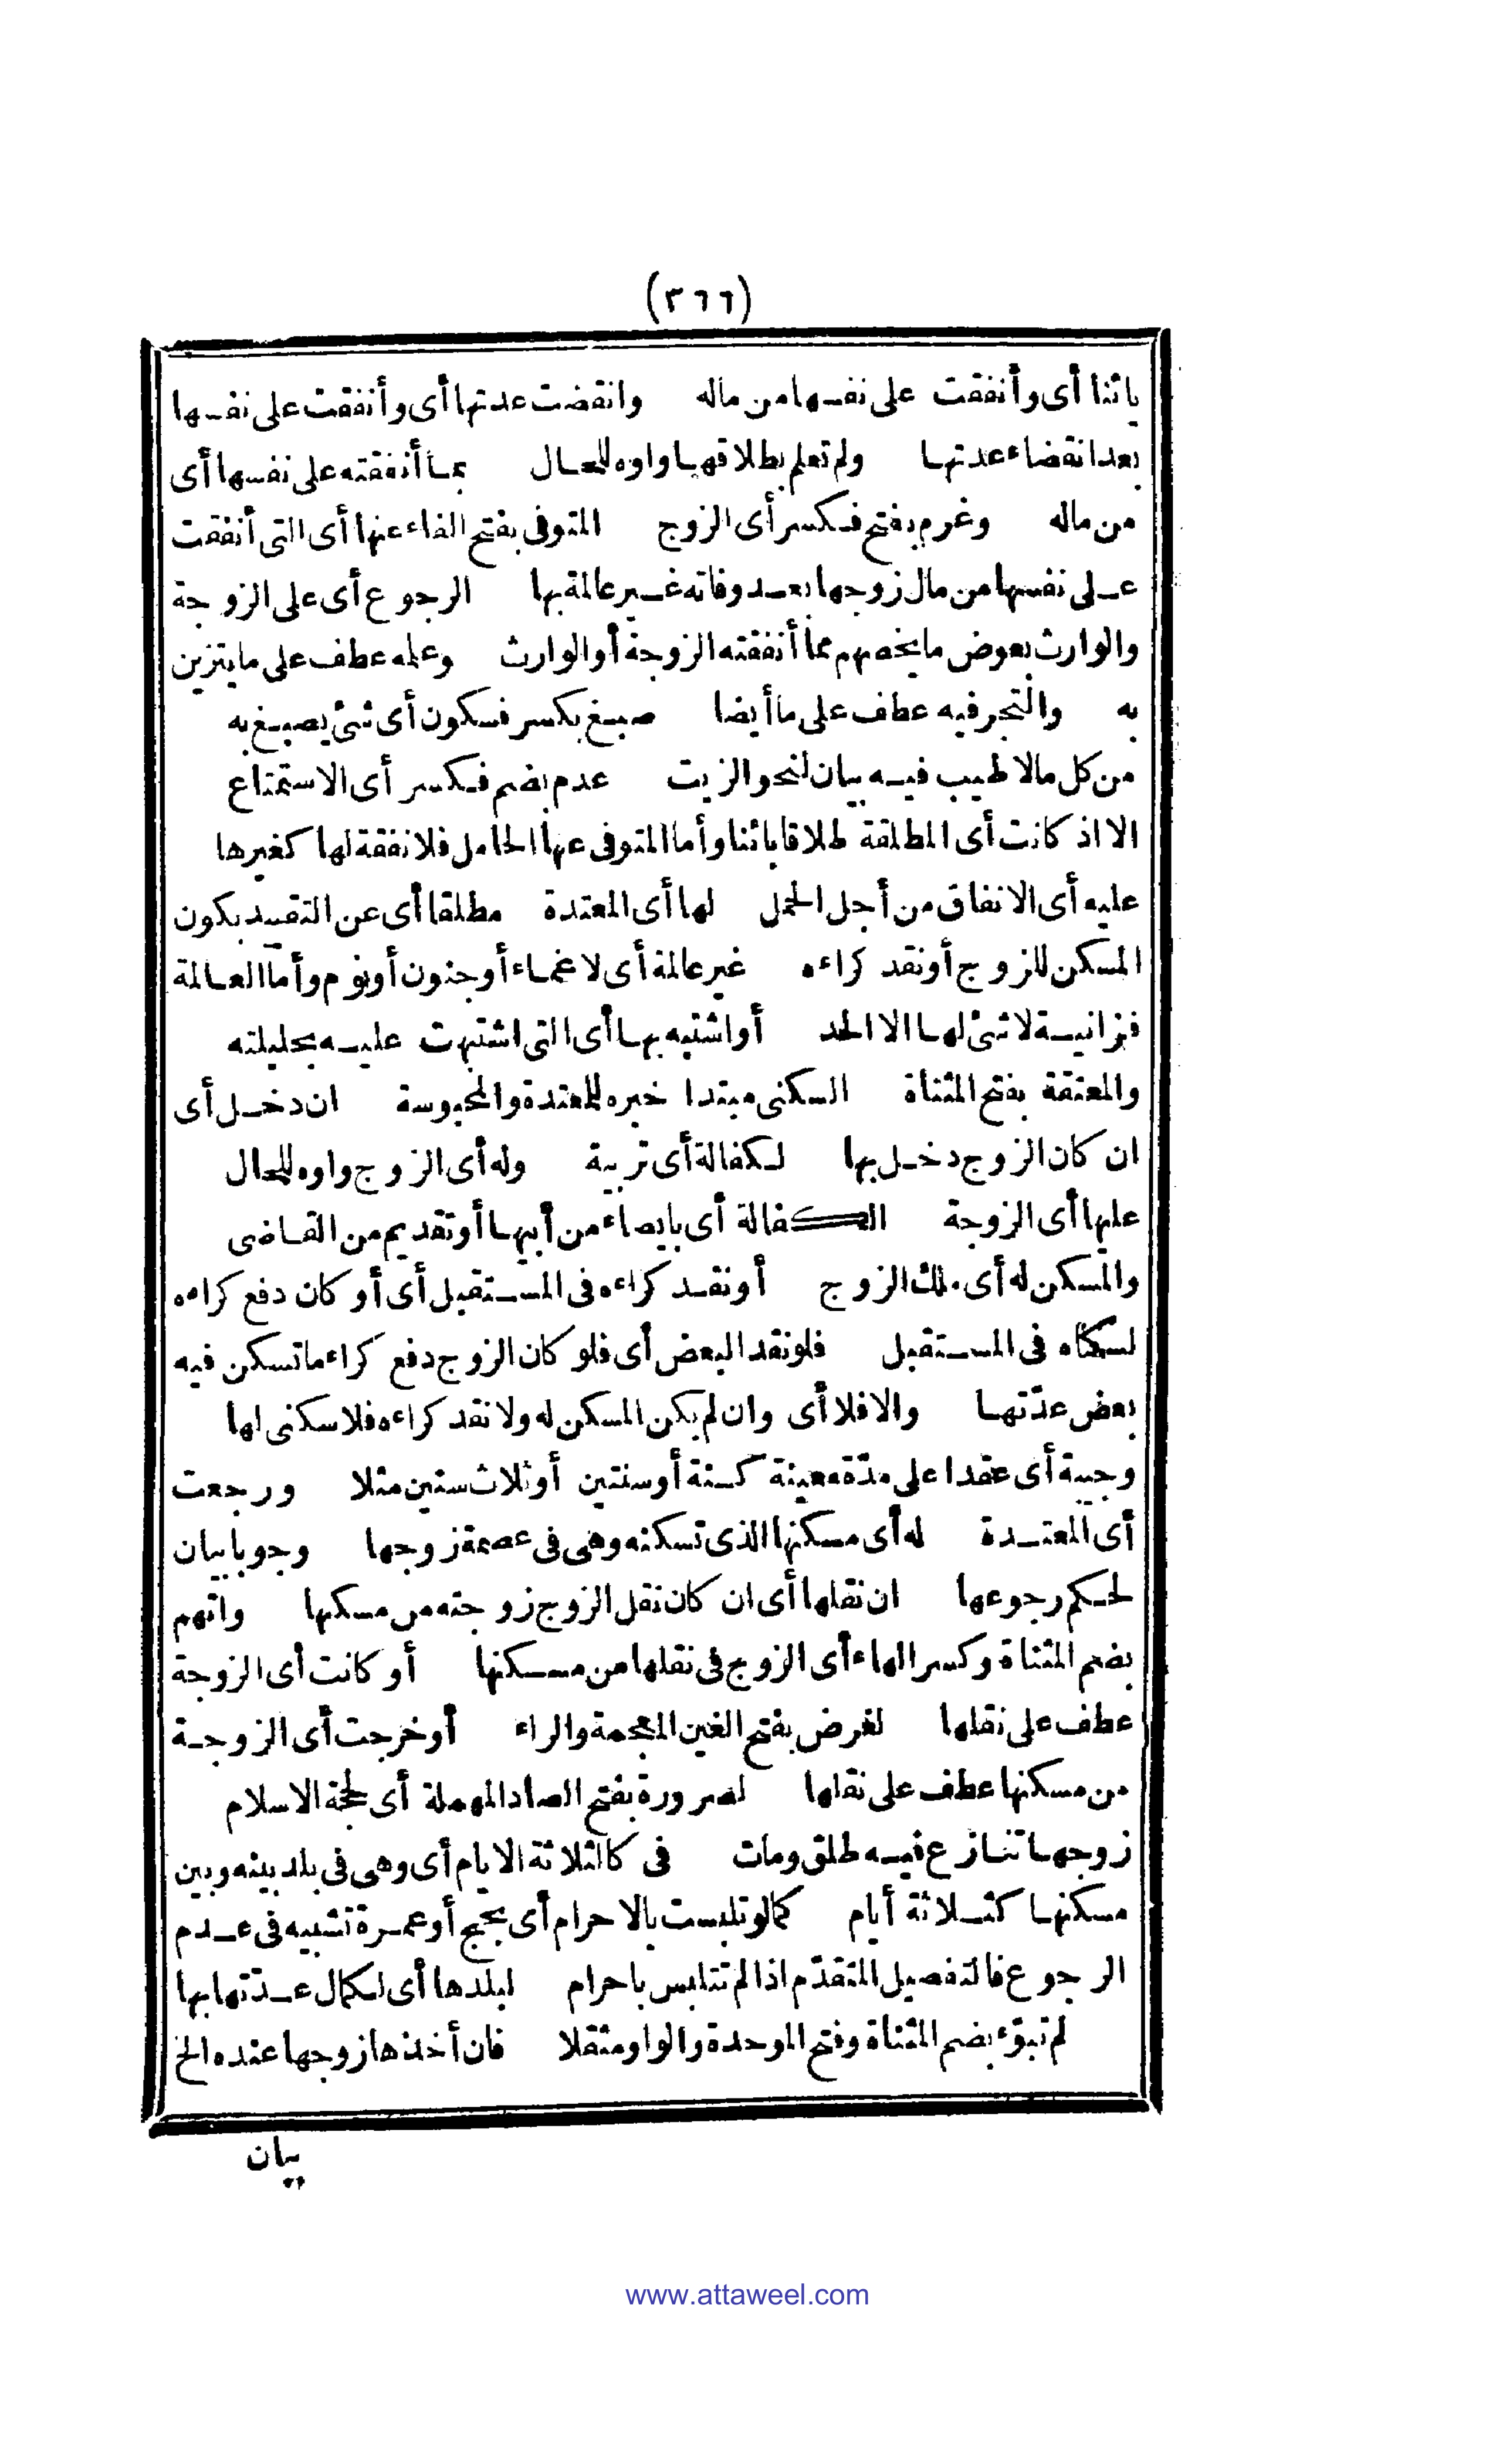 (٣٦٦)
بائنا أى وأنفقت على نفسها من ماله وانقضت عدتها أى وأنفقت على نفسها
بعد انقضاء عدتها ولم تعلم بطلاقها واوه للحال بما أنفقته على نفسها أى
من ماله وغرم بفتح فكسر أى الزوج المتوفى بفتح الفاء عنها أى التى أنفقت
على نفسها من مال زوجها بعد وفاته غير عالمة بها الرجوع أى على الزوجة
والوارث بعوض ما يخصهم مما أنفقته الزوجة أو الوارث وعمله عطف على ما يتزين
به والتجر فيه عطف على ما أيضا صبغ بكسر فسكون أى شئ يصبغ به
من كل مالا طيب فيه بيان لنحو الزيت عدم بضم فكسر أى الاستمتاع
الا اذ كانت أى المطلقة طلاقا بائنا وأما المتوفى عنها الحامل فلا نفقة لها كغيرها
عليه أى الانفاق من أجل الحمل لها أى المعتدة مطلقا أى عن التقييد بكون
المسكن للزوج أو نقد كراءه غير عالمة أى لاغماء أو جنون أو نوم وأما العالمة
فزانية لا شئ لها الا الحد أو اشتبه بها أى التى اشتبهت عليه بحليلته
والمعتقة بفتح المثناة السكنى مبتدا خبره للمعتدة والمحبوسة ان دخل أى
ان كان الزوج دخل بها لكفالة أى تربية وله أى الزوج واوه للحال
عليها أى الزوجة الكفالة أى بايصاء من أبيها أو تقديم من القاضى
والمسكن له أى ملك الزوج أو نقد كراءه فى المستقبل أى أو كان دفع كراءه
لسكناه فى المستقبل فلو نقد البعض أى فلو كان الزوج دفع كراء ما تسكن فيه
بعض عدّتها والا فلا أى وان لم يكن المسكن له ولا نقد كراءه فلا سكنى لها
وجيبة أى عقدا على مدّة معينة كسنة أو سنتين أو ثلاث سنين مثلا ورجعت
أى المعتدة له أى مسكنها الذى تسكنه وهى فى عصمة زوجها وجوبا بيان
لحكم رجوعها ان نقلها أى ان كان نقل الزوج زوجته من مسكنها واتهم
بضم المثناة وكسر الهاء أى الزوج فى نقلها من مسكنها أو كانت أى الزوجة
عطف على نقلها لغرض بفتح الغين المعجمة والراء أو خرجت أى الزوجة
من مسكنها عطف على نقلها لصرورة بفتح الصاد المهملة أى لحجة الاسلام
زوجها تنازع فيه طلق ومات فى كالثلاثة الايام أى وهى فى بلد بينه وبين
مسكنها كثلاثة أيام كما لو تلبست بالاحرام أى بحج أو عمرة تشبيه فى عدم
الرجوع فالتفصيل المتقدّم اذا لم تتلبس باحرام لبلدها أى لكمال عدّتها بها
لم تبوّء بضم المثناة وفتح الموحدة والواو مثقلا فان أخذها زوجها عنده الخ
بيان
www.attaweel.com